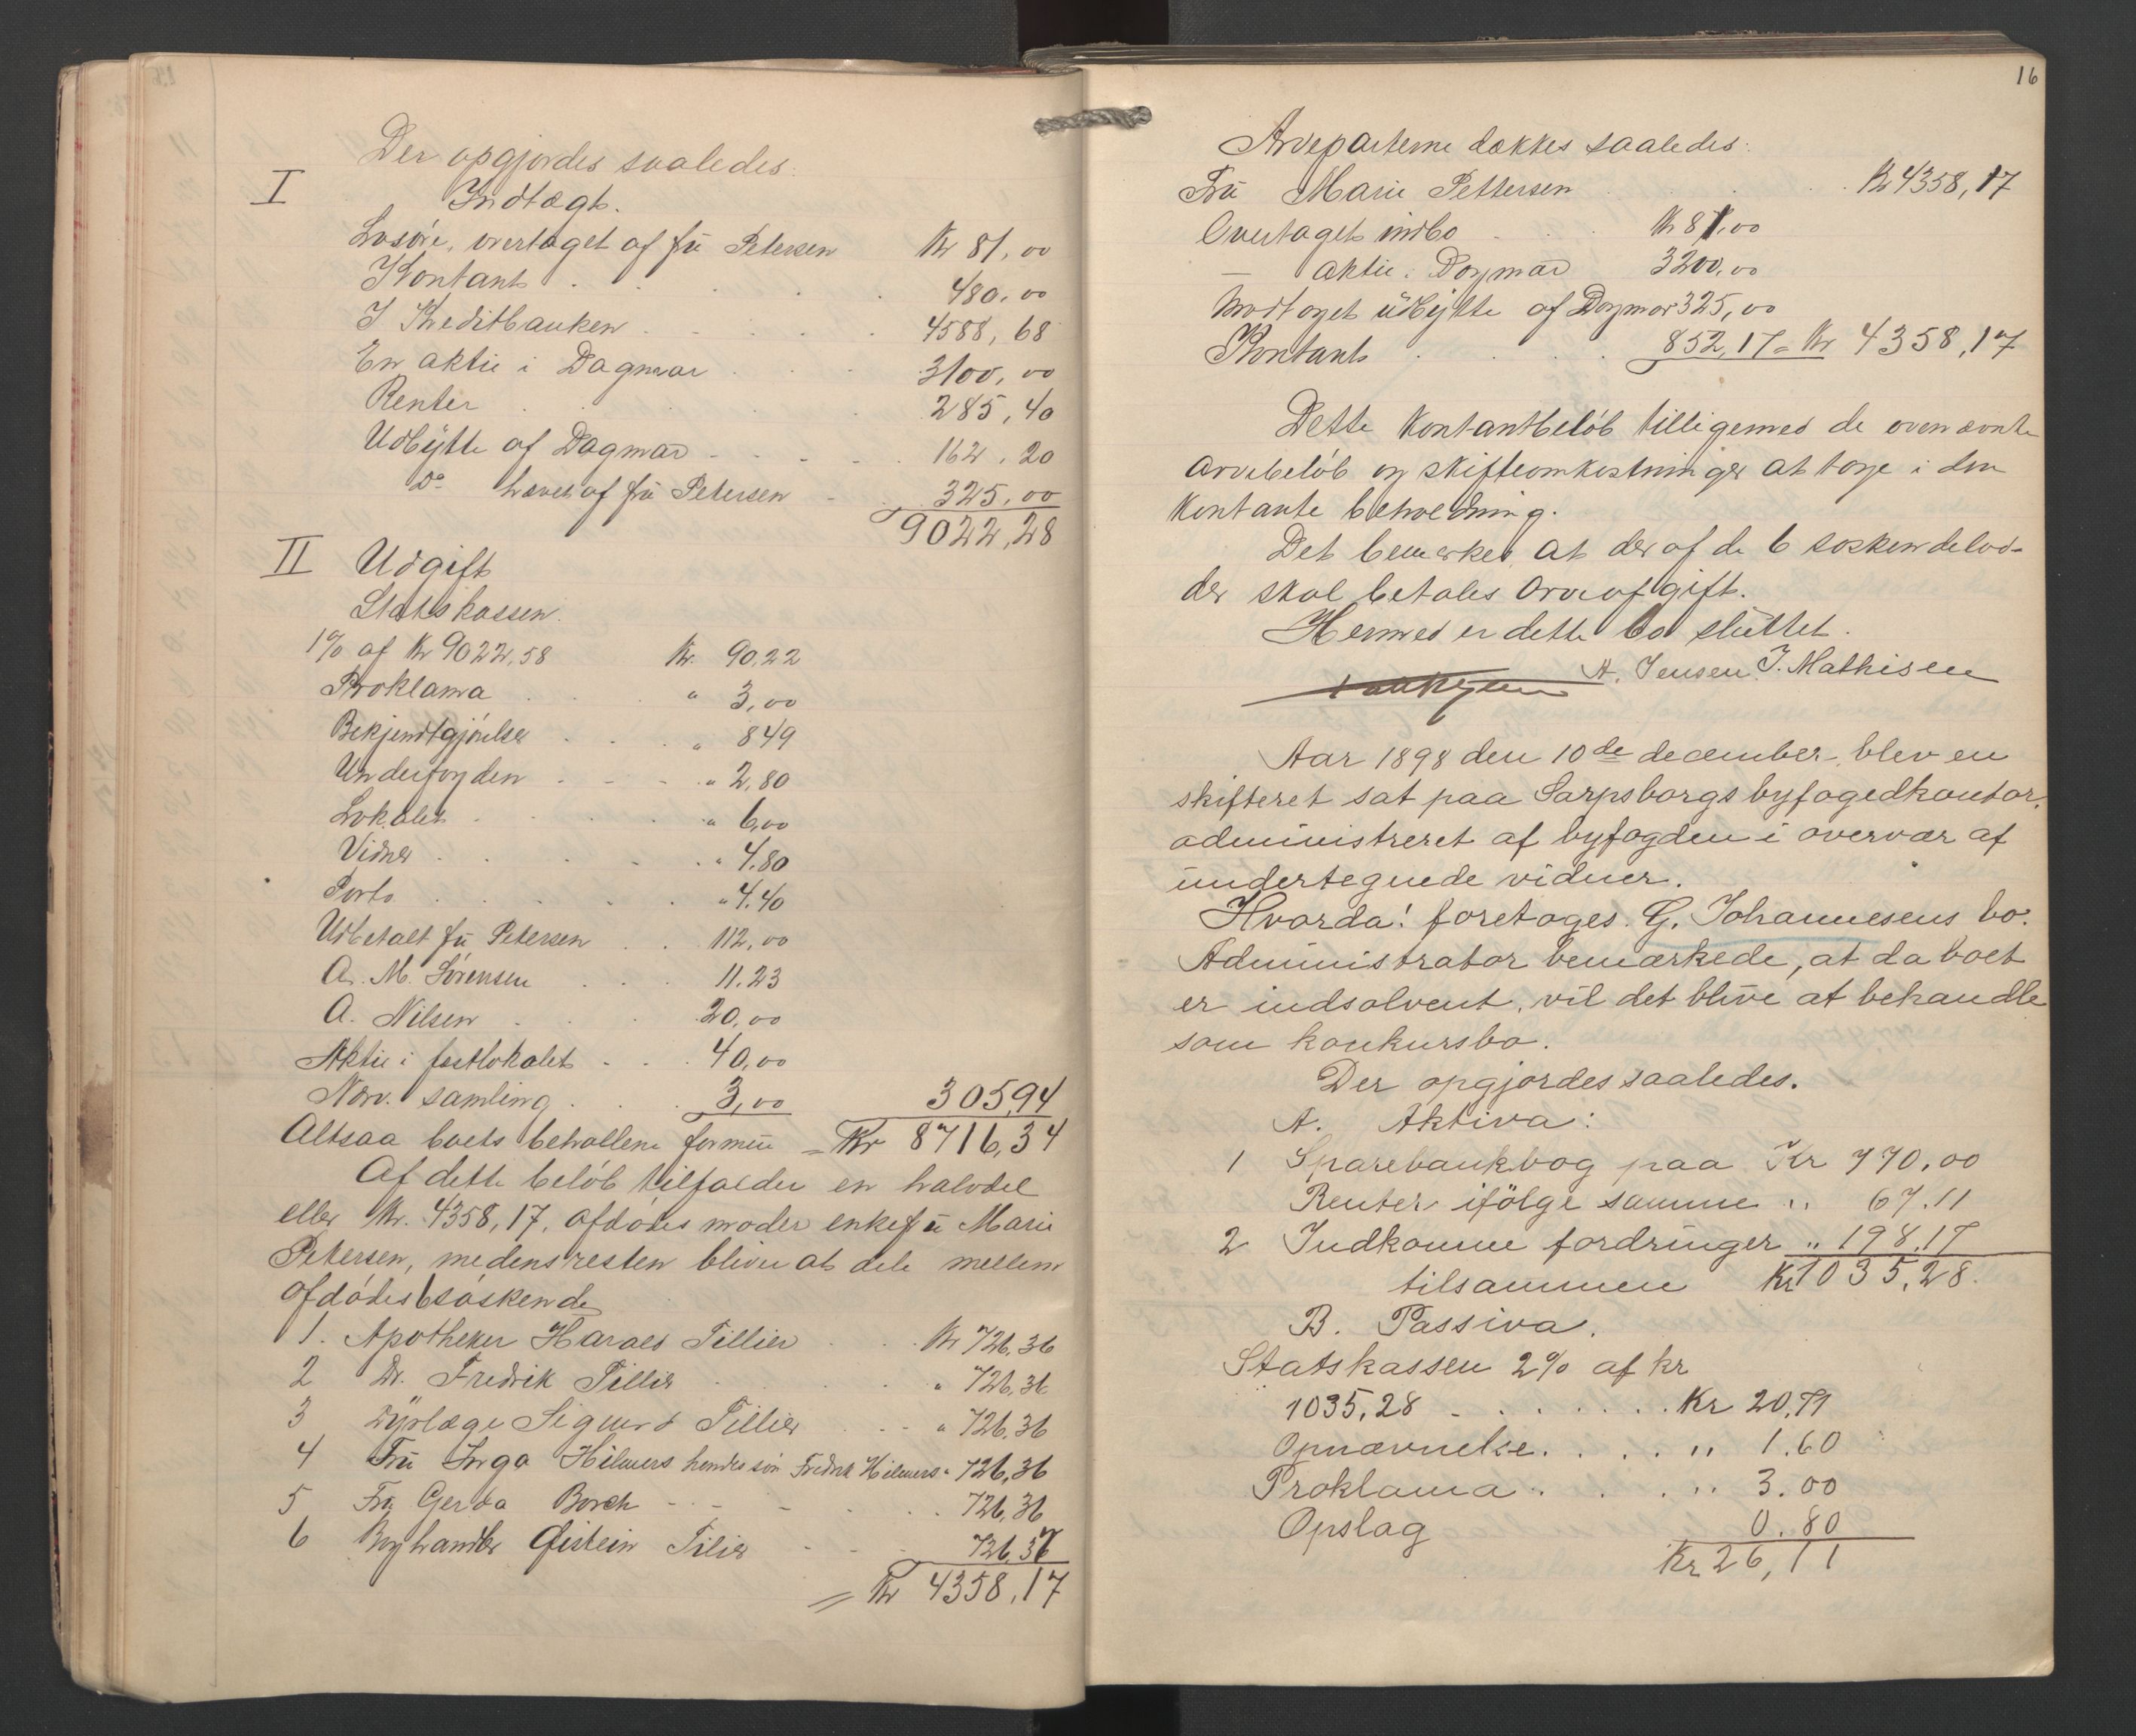 Der opgjordes saaledes:
I Indtægt.
Løsøre, overtaget af frü Petersen Kr 81,00
Kontant 480,00
I Kreditbanken 4588,68
En aktie i Dagmar 3100,00
Renter 285,40
Udbÿtte af Dagmar 162,20
Do hævet af frü Petersen 325,00
9022,28
II Udgift
Statskassen.
1% af Kr 9022,58 Kr. 90,22
Proklama " 3,00
Bekjendtgjørelse " 849
Underfogden " 2,80
Lokalet " 6,00
Vidner " 4.80
Porto " 4.40
Udbetalt frü Petersen 112,00
A. M. Sørensen 11.23
A. Nilsen 20,00
Aktie i festlokalet 40,00
Norv. samling 3,00 305,94
Altsaa boets beholdene formüe = Kr 8716,34
Af dette beløb tilfalder en halvdel
eller Kr. 4358,17, afdødes moder enkefrü Marie
Petersen, medens resten bliver at dele mellem
afdødes 6 søskende
1. Apotheker Harald Tillier Kr 726,36
2 Dr. Fredrik Tillier " 726,36
3 Dÿrlæge Sigurd Tillier " 726,36
4 Frü Inga Hilmers hendes søn Fredrik Hilmers " 726,36
5 Frü Gerda Borch 726,36
6 Boghandler Øistein Tilier 726,37
= Kr 4358,17
16
Arveparterne dækkes saaledes:
Frü Marie Pettersen Kr 4358,17
Overtaget indbo Kr 81,00
— aktie: Dagmar 3200,00
Modtaget üdbÿtte af Dagmar 325,00
Kontant 852,17 = Kr 4358,17
Dette kontantbeløb tilligemed de ovennævnte
arvebeløb og skifteomkostninger at tage i den
kontante beholdning.
Det bemerkes at der af de 6 søskendelod-
der skal betales arveafgift.
Hermed er dette bo slüttet.
A. Jensen J. Mathisen
Aar 1898 den 10de december blev en
skifteret sat paa Sarpsborgs byfogedkontor,
administreret af byfogden i overvær af
undertegnede vidner.
Hvorda: foretoges G. Johannesens bo.
Administrator bemærkede, at da boet
er indsolvent, vil det blive at behandle
som konkursbo.
Der opgjordes saaledes.
A. Aktiva:
1 Sparebankbog paa Kr 770,00
Renter ifölge samme " 67.11
2 Indkomne fordringer " 198.17
tilsammen Kr 1035,28.
B. Passiva.
Statskassen 2% af kr
1035,28 Kr 20,71
Opnævnelse " 1.60
Proklama " 3.00
Opslag 0.80
Kr 26,11